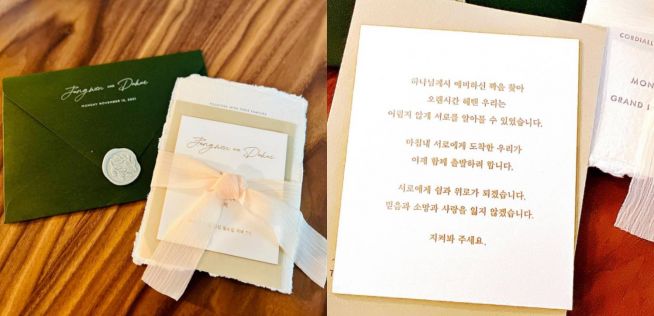 MONDAY NOVEMBER 15, 2021
TOGETHER WITH THEIR FAMILIES
하나님께서 예비하신 짝을 찾아
오랜시간 헤맨 우리는
어렵지 않게 서로를 알아볼 수 있었습니다.
마침내 서로에게 도착한 우리가
이제 함께 출발하려 합니다.
서로에게 쉼과 위로가 되겠습니다.
믿음과 소망과 사랑을 잃지 않겠습니다.
지켜봐 주세요.
CORDIALL
MON
GRAND I